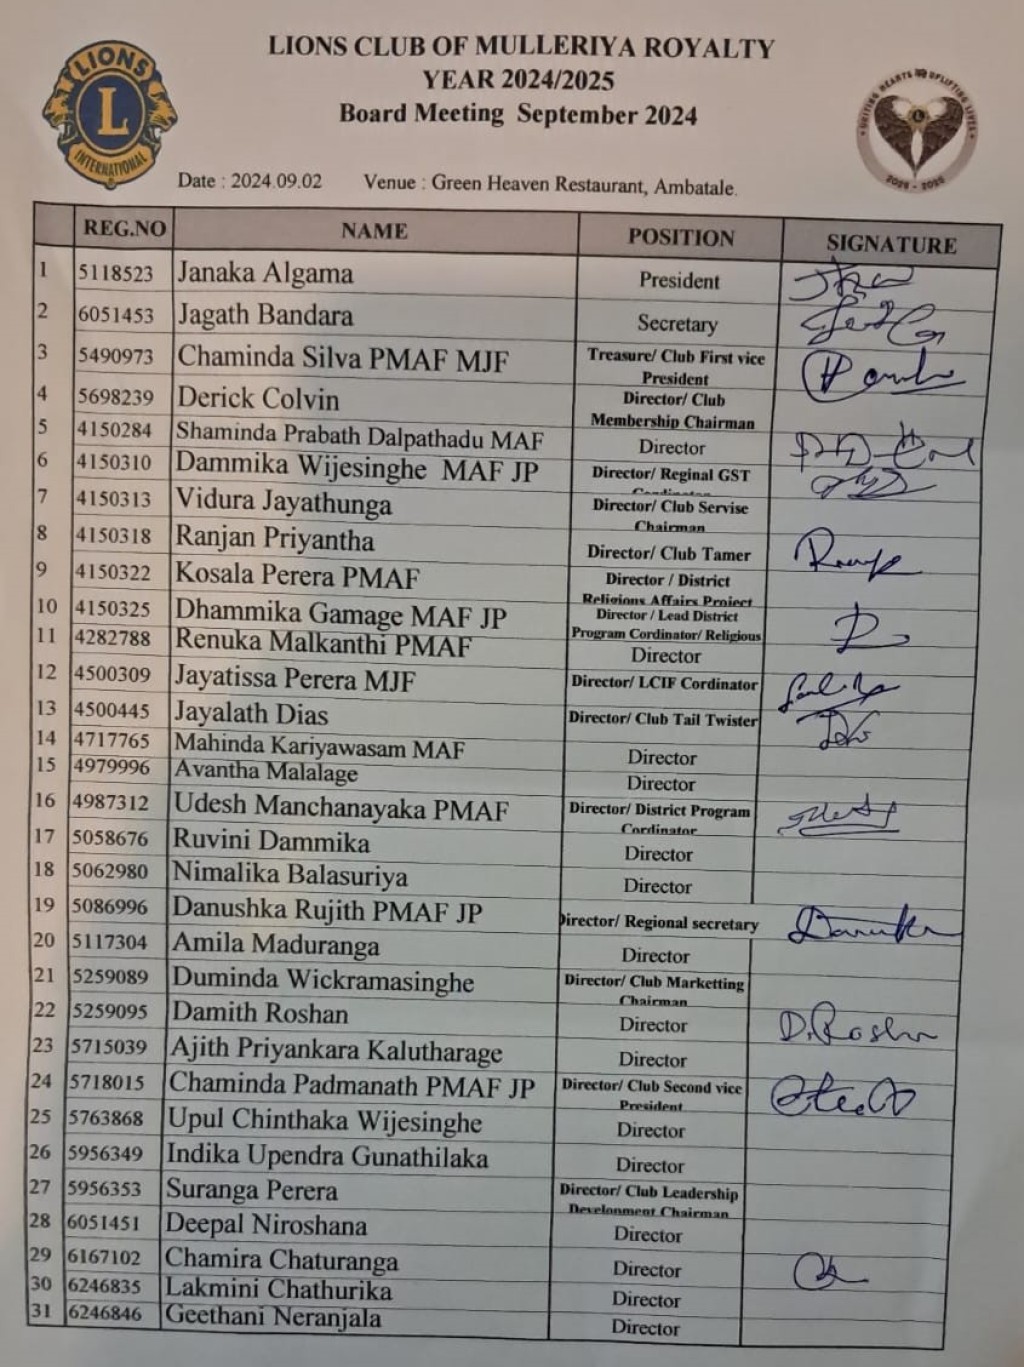 LIONS CLUB OF MULLERIYA ROYALTY
YEAR 2024/2025
Board Meeting September 2024
LIONS
L
INTERNATIONAL
UNITING HEARTS UPLIFTING LIVES
Date : 2024.09.02 Venue : Green Heaven Restaurant, Ambatale.
REG.NO NAME POSITION SIGNATURE
1 5118523 Janaka Algama President
2 6051453 Jagath Bandara Secretary
3 5490973 Chaminda Silva PMAF MJF Treasure/ Club First vice
President
4 5698239 Derick Colvin Director/ Club
Membership Chairman
5 4150284 Shaminda Prabath Dalpathadu MAF Director
6 4150310 Dammika Wijesinghe MAF JP Director/ Reginal GST
Cordinator
7 4150313 Vidura Jayathunga Director/ Club Servise
Chairman
8 4150318 Ranjan Priyantha Director/ Club Tamer
9 4150322 Kosala Perera PMAF Director / District
Religions Affairs Project
10 4150325 Dhammika Gamage MAF JP Director / Lead District
Program Cordinator/ Religious
11 4282788 Renuka Malkanthi PMAF Director
12 4500309 Jayatissa Perera MJF Director/ LCIF Cordinator
13 4500445 Jayalath Dias Director/ Club Tail Twister
14 4717765 Mahinda Kariyawasam MAF Director
15 4979996 Avantha Malalage Director
16 4987312 Udesh Manchanayaka PMAF Director/ District Program
Cordinator
17 5058676 Ruvini Dammika Director
18 5062980 Nimalika Balasuriya Director
19 5086996 Danushka Rujith PMAF JP Director/ Regional secretary
20 5117304 Amila Maduranga Director
21 5259089 Duminda Wickramasinghe Director/ Club Marketting
Chairman
22 5259095 Damith Roshan Director D.Roshan
23 5715039 Ajith Priyankara Kalutharage Director
24 5718015 Chaminda Padmanath PMAF JP Director/ Club Second vice
President
25 5763868 Upul Chinthaka Wijesinghe Director
26 5956349 Indika Upendra Gunathilaka Director
27 5956353 Suranga Perera Director/ Club Leadership
Development Chairman
28 6051451 Deepal Niroshana Director
29 6167102 Chamira Chaturanga Director
30 6246835 Lakmini Chathurika Director
31 6246846 Geethani Neranjala Director